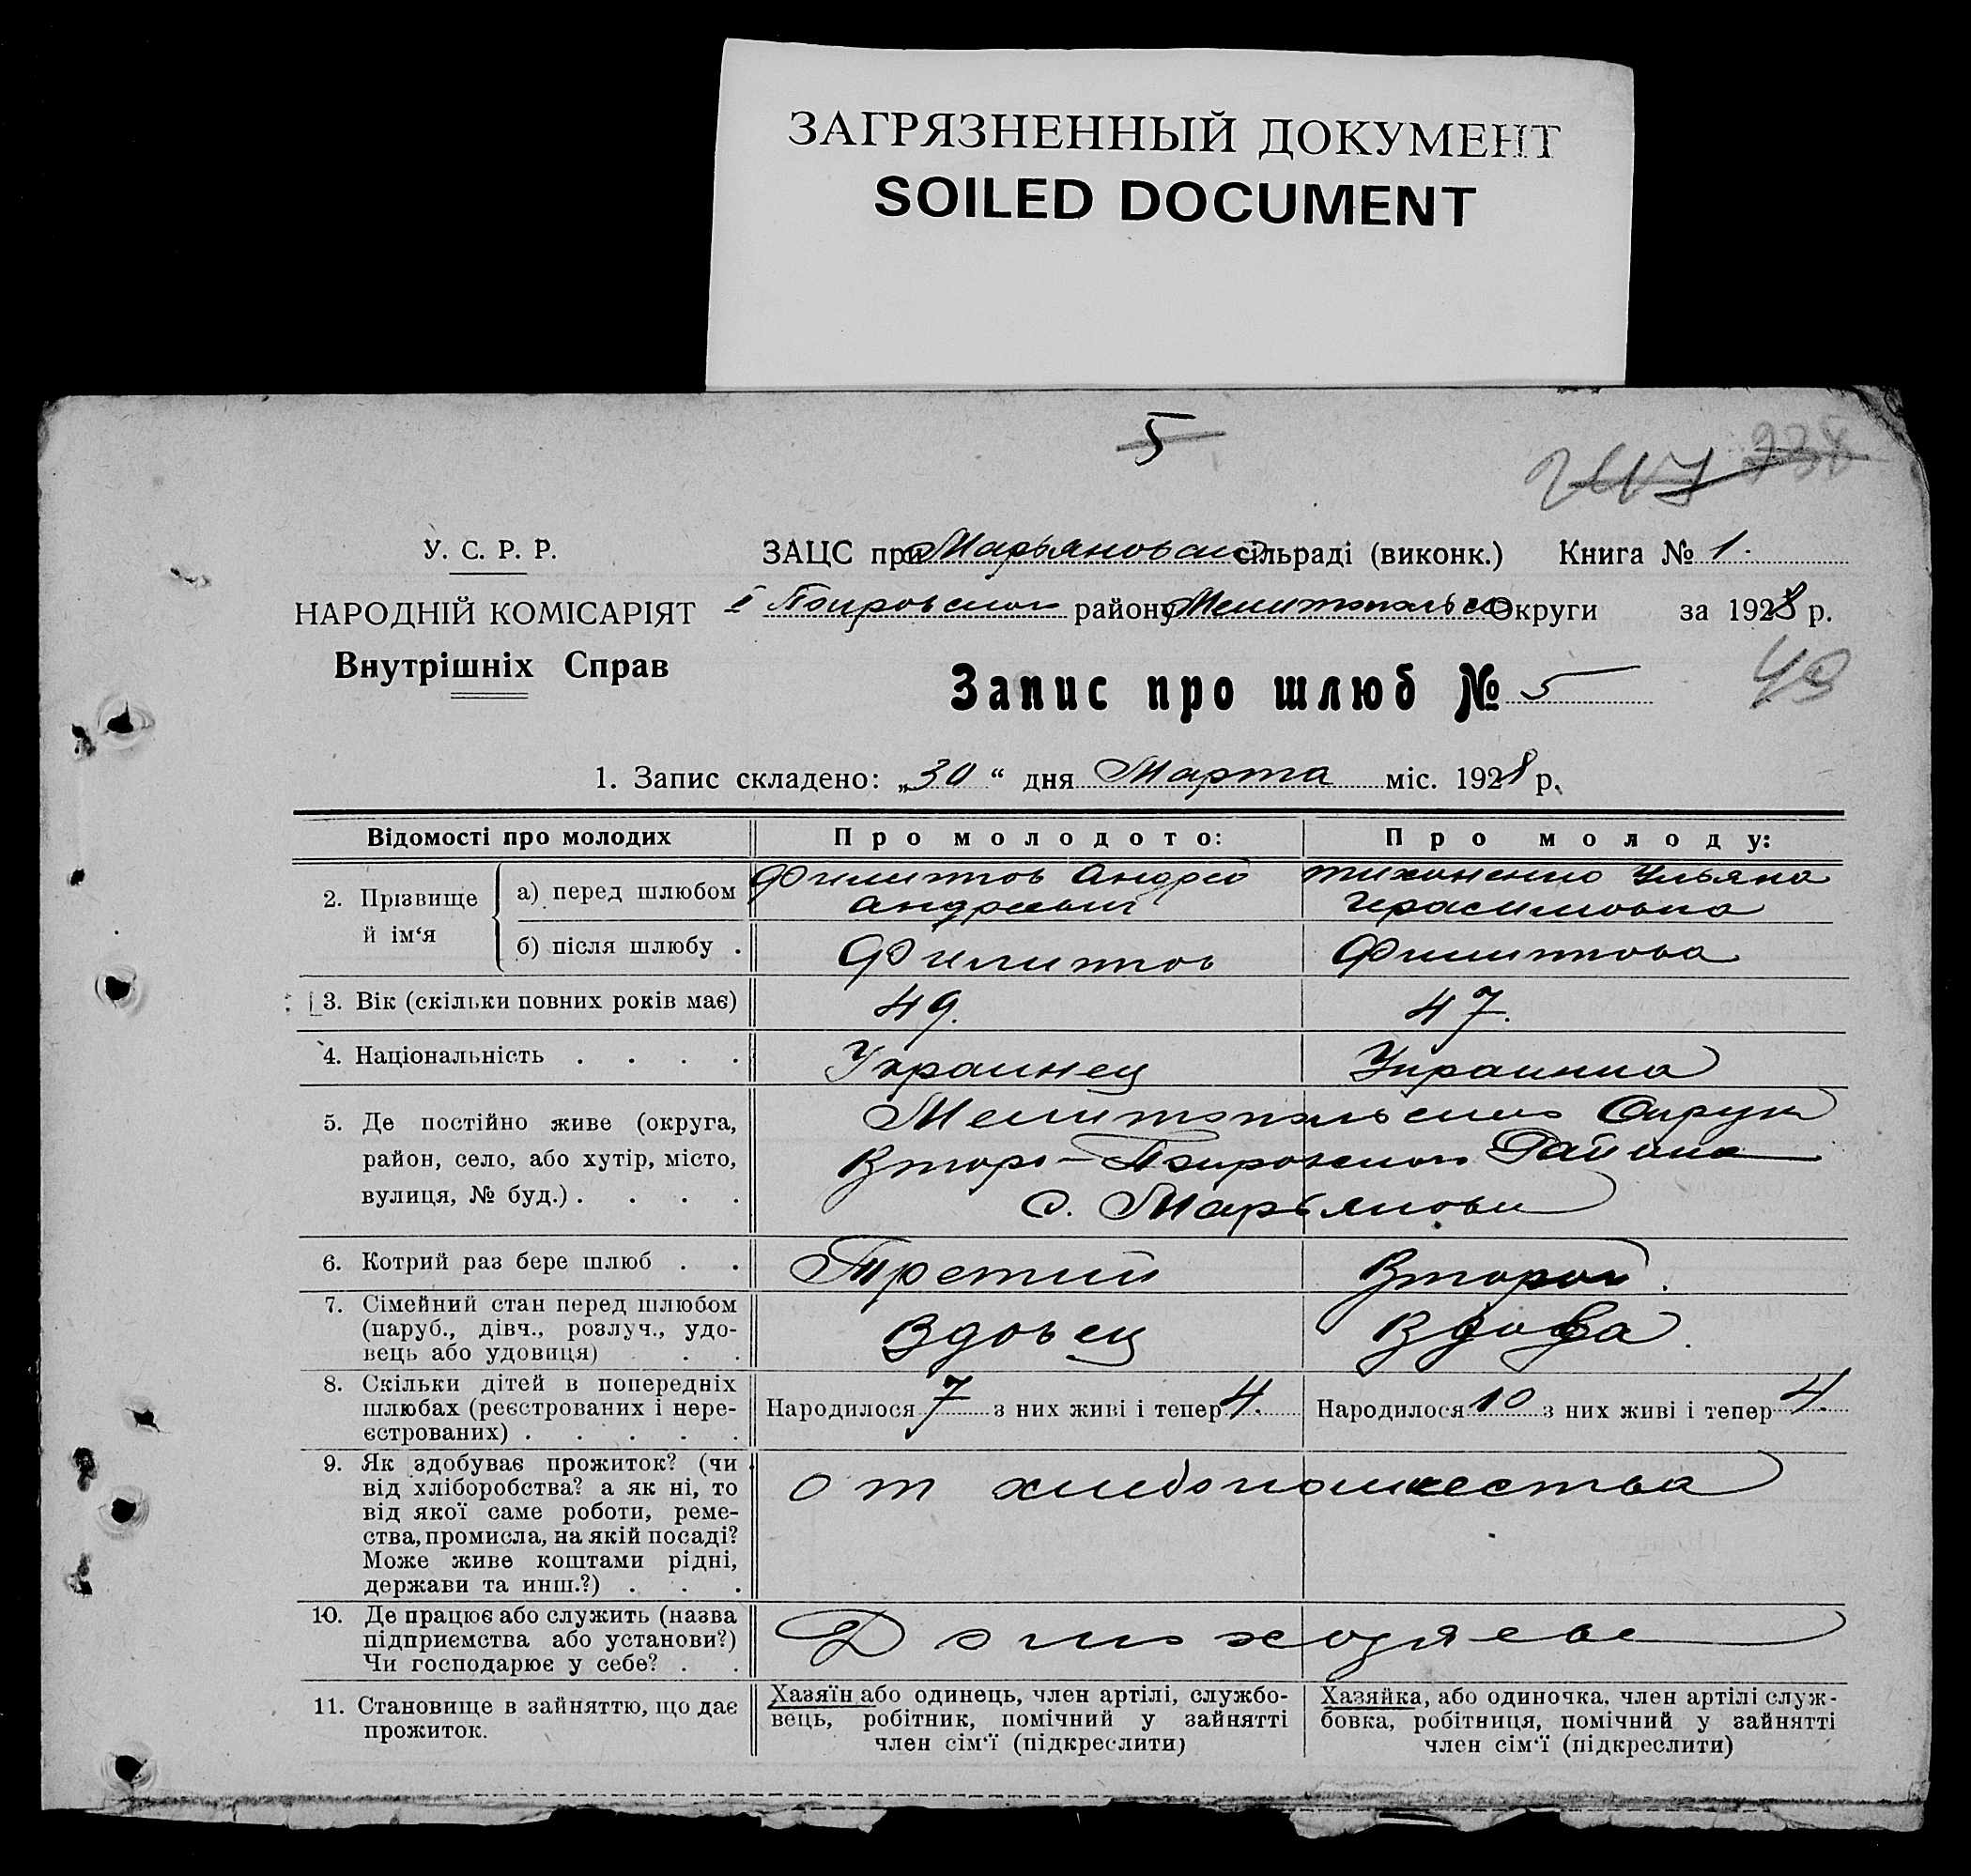 ЗАГРЯЗНЕННЫЙ ДОКУМЕНТ
SOILED DOCUMENT
5
238
У. С. Р. Р.
НАРОДНІЙ КОМІСАРІЯТ
Внутрішніх Справ
ЗАЦС при Марьяновской сільраді (виконк.) Книга № 1.
Покровского району Мелитопольской Округи за 1928 р.
Запис про шлюб № 5
49
1. Запис складено: „30“ дня Марта міс. 1928 р.
Відомості про молодих
Про молодого:
Про молоду:
2. Прізвище й ім‘я
а) перед шлюбом
Филиппов Андрей Андреевич
Тихоненко Ульяна Герасимовна
б) після шлюбу .
Филиппов
Филиппова
3. Вік (скільки повних років має)
49.
47.
4. Національність . . . .
Украинец
Украинка
5. Де постійно живе (округа,
район, село, або хутір, місто,
вулиця, № буд.) . . . .
Мелитопольского Округа
Второ-Покровского Района
с. Марьяновки
6. Котрий раз бере шлюб . .
Третий
Второй.
7. Сімейний стан перед шлюбом
(паруб., дівч., розлуч., удо-
вець або удовиця) . .
Вдовец
Вдова.
8. Скільки дітей в попередніх
шлюбах (реєстрованих і нере-
єстрованих) . . . . .
Народилося 7 з них живі і тепер 4.
Народилося 10 з них живі і тепер 4.
9. Як здобуває прожиток? (чи
від хліборобства? а як ні, то
від якої саме роботи, реме-
ства, промисла, на якій посаді?
Може живе коштами рідні,
держави та инш.?) . . .
от хлебопашества
10. Де працює або служить (назва
підприємства або установи?)
Чи господарює у себе? . .
11. Становище в зайняттю, що дає
прожиток.
Хазяїн або одинець, член артілі, службо-
вець, робітник, помічний у зайнятті
член сім‘ї (підкреслити)
Хазяйка, або одиночка, член артілі служ-
бовка, робітниця, помічний у зайнятті
член сім‘ї (підкреслити)